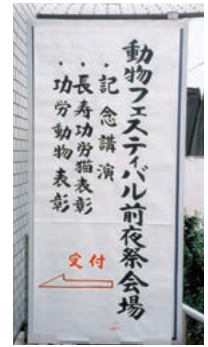 動物フェスティバル前夜祭会場
・記念講演
・長寿功労猫表彰
・功労動物表彰
受付